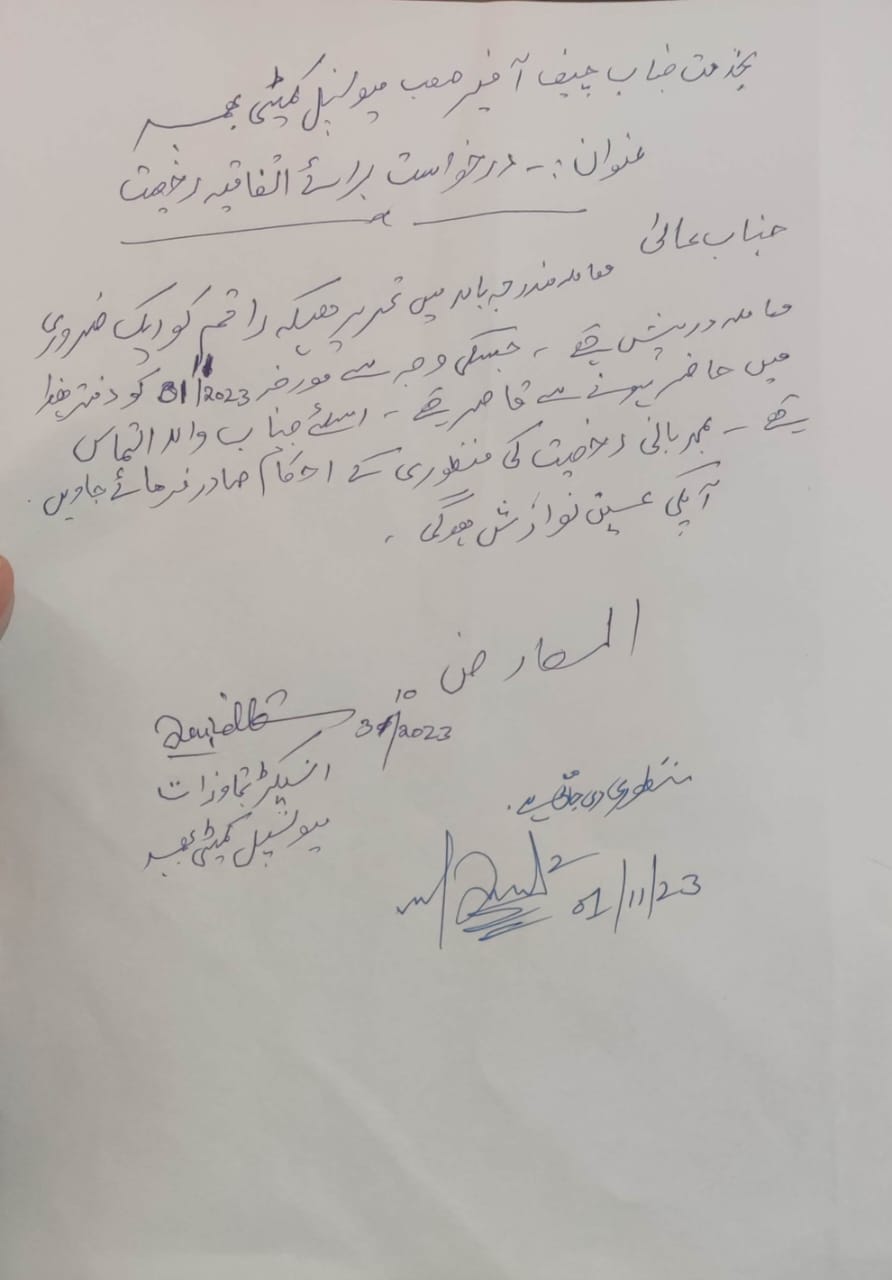 بخدمت جناب چیف آفیسر صاحب میونسپل کمیٹی بھمبر
عنوان :۔ درخواست برائے اتفاقیہ رخصت
جناب عالیٰ
معاملہ مندرجہ بالا میں تحریر ھیکہ راقم کو ایک ضروری
معاملہ درپیش ھے ۔ جسکی وجہ سے مورخہ 01/11/2023 کو دفتر ھذا
میں حاضر ہونے سے قاصر ھے ۔ اسلئے جناب والا التماس
ھے ۔ بمہربانی رخصت کی منظوری کے احکام صادر فرمائے جاویں ۔
آپکی عین نوازش ہوگی ۔
العارض
31/10/2023
انسپکٹر تجاوزات
میونسپل کمیٹی بھمبر
منظوری دی جاتی ہے ۔
01/11/23